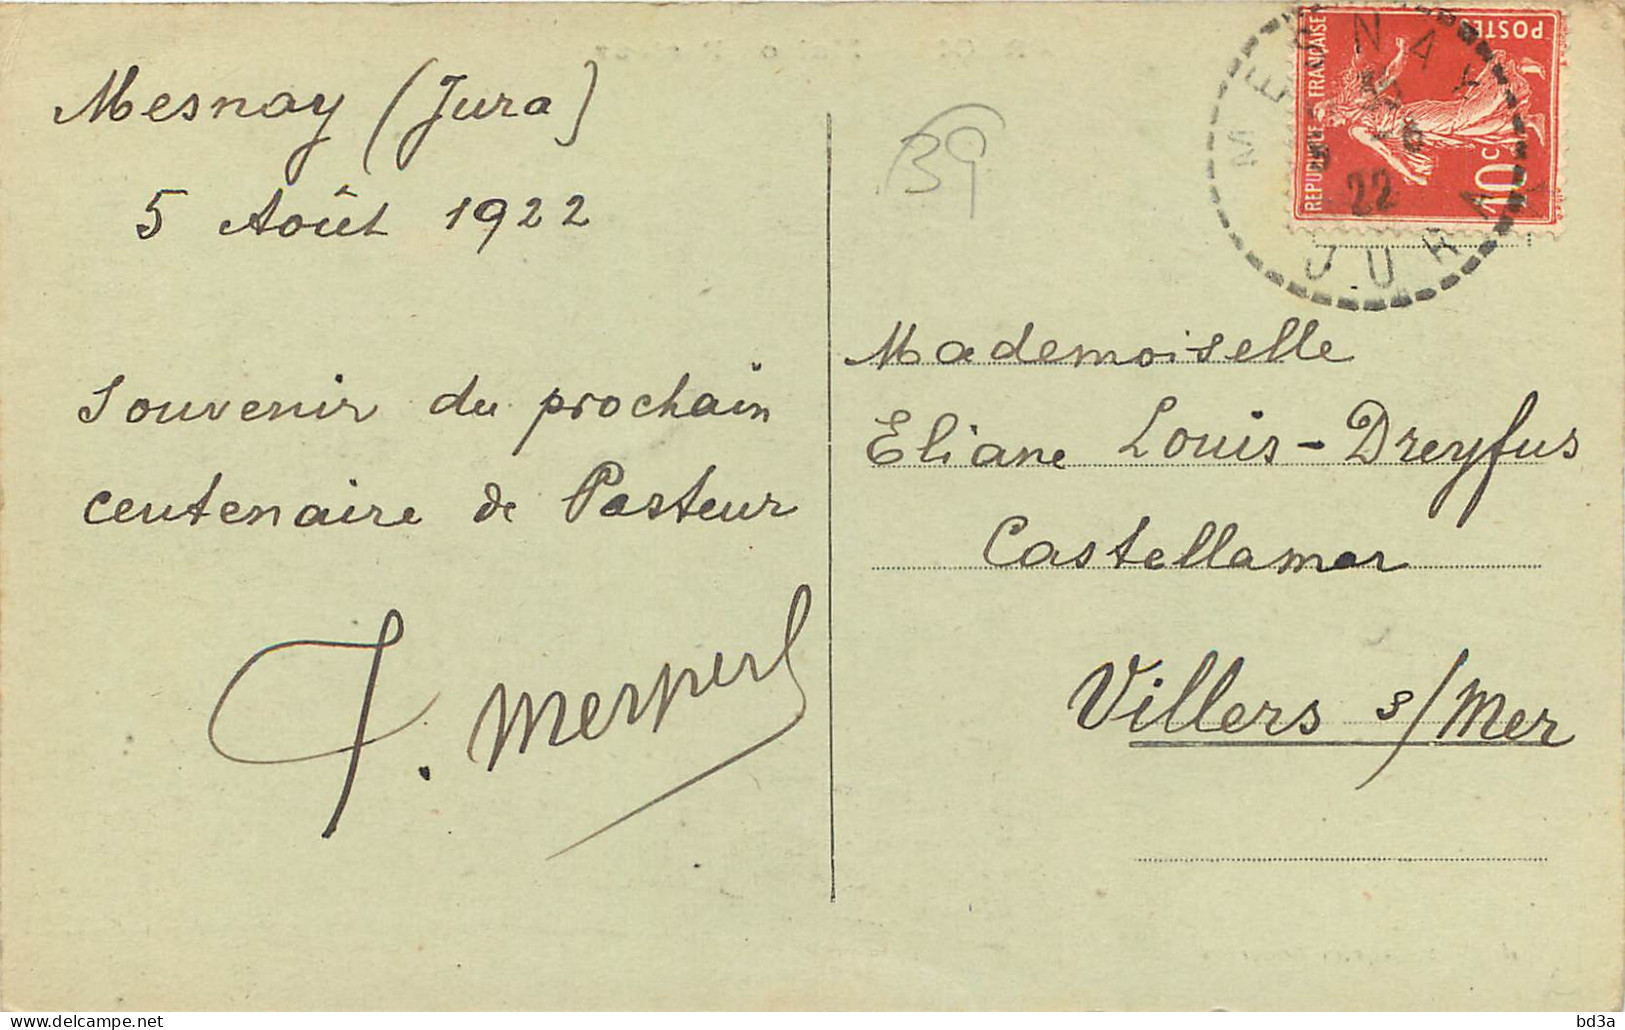 Mesnay (Jura)
5 Août 1922
Souvenir du prochain
centenaire de Pasteur
39
REPUBLIQUE FRANÇAISE
POSTES
10c
MESNAY
5 - 8
22
JURA
Mademoiselle
Eliane Louis-Dreyfus
Castellamar
Villers s/Mer
bd3a